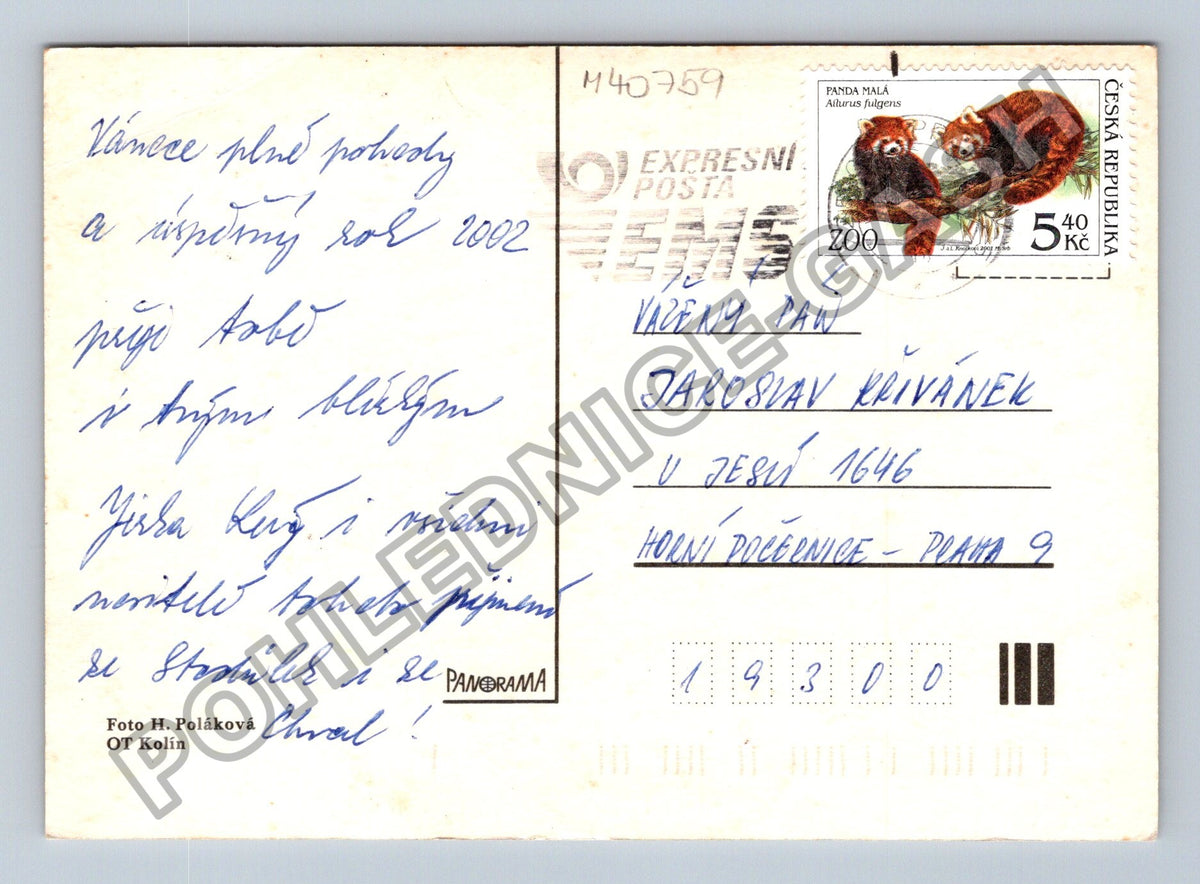 Vánoce plné pohody
a úspěšný rok 2002
přeji Tobě
i tvým blízkým
Jirka Levý i všichni
nositelé tohoto příjmení
ze Stodůlek i ze
Chval!
Foto H. Poláková
OT Kolín
PANORAMA
M40759
EXPRESNÍ
POŠTA
EMS
PANDA MALÁ
Ailurus fulgens
ČESKÁ REPUBLIKA
ZOO
5 40
Kč
VÁŽENÝ PAN
JAROSLAV KŘIVÁNEK
U JESLÍ 1646
HORNÍ POČERNICE - PRAHA 9
19300
POHLEDNICE-GASH